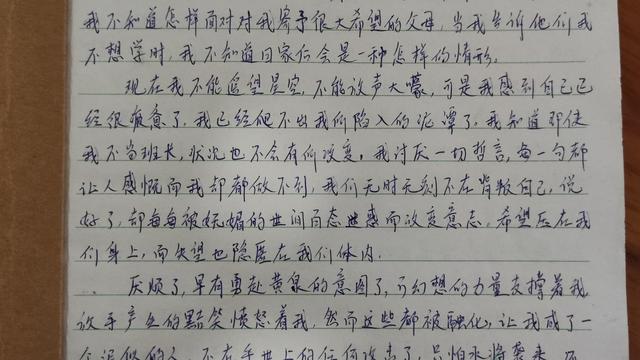 我不知道怎样面对对我寄予很大希望的父母，当我告诉他们我
不想学时，我不知道回家后会是一种怎样的情形。
现在我不能遥望星空，不能放声大嚎，可是我感到自己已
经很疲惫了，我已经爬不出我所陷入的泥潭了，我知道即使
我不当班长，状况也不会有所改变。我讨厌一切哲言，每一句都
让人感慨而我却都做不到，我们无时无刻不在背叛自己，说
好了，却每每被妩媚的世间百态迷惑而改变意志。希望压在我
们身上，而失望也隐匿在我们体内。
厌烦了，早有勇赴黄泉的意图了，可幻想的力量支撑着我
放手产生的黠笑愤怒着我，然而这些都被融化，让我成了一
个泥似的人，不在乎世上的任何攻击了，只怕水将袭来，而